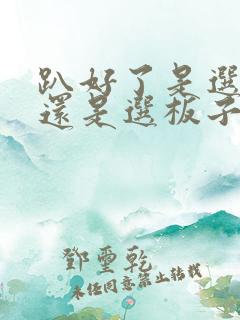 趴好了是選
還是選板子
鄧璽乾
未經同意禁止轉載